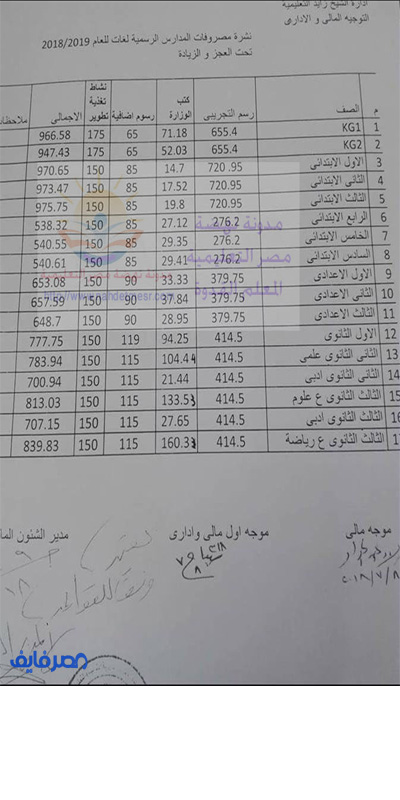 ادارة الشيخ زايد التعليمية
التوجيه المالى و الادارى
نشرة مصروفات المدارس الرسمية لغات للعام 2018/2019
تحت العجز و الزيادة
م الصف رسم التجريبى كتب الوزارة رسوم اضافية نشاط تغذية تطوير الاجمالى ملاحظات
1 KG1 655.4 71.18 65 175 966.58
2 KG2 655.4 52.03 65 175 947.43
3 الاول الابتدائى 720.95 14.7 85 150 970.65
4 الثانى الابتدائى 720.95 17.52 85 150 973.47
5 الثالث الابتدائى 720.95 19.8 85 150 975.75
6 الرابع الابتدائى 276.2 27.12 85 150 538.32
7 الخامس الابتدائى 276.2 29.35 85 150 540.55
8 السادس الابتدائى 276.2 29.41 85 150 540.61
9 الاول الاعدادى 379.75 33.33 90 150 653.08
10 الثانى الاعدادى 379.75 37.84 90 150 657.59
11 الثالث الاعدادى 379.75 28.95 90 150 648.7
12 الاول الثانوى 414.5 94.25 119 150 777.75
13 الثانى الثانوى علمى 414.5 104.44 115 150 783.94
14 الثانى الثانوى ادبى 414.5 21.44 115 150 700.94
15 الثالث الثانوى ع علوم 414.5 133.53 115 150 813.03
16 الثالث الثانوى ادبى 414.5 27.65 115 150 707.15
17 الثالث الثانوى ع رياضة 414.5 160.33 115 150 839.83
مدونة نهضة
مصر التعليمية
موجه مالى موجه اول مالى وادارى مدير الشئون
مصر فايف